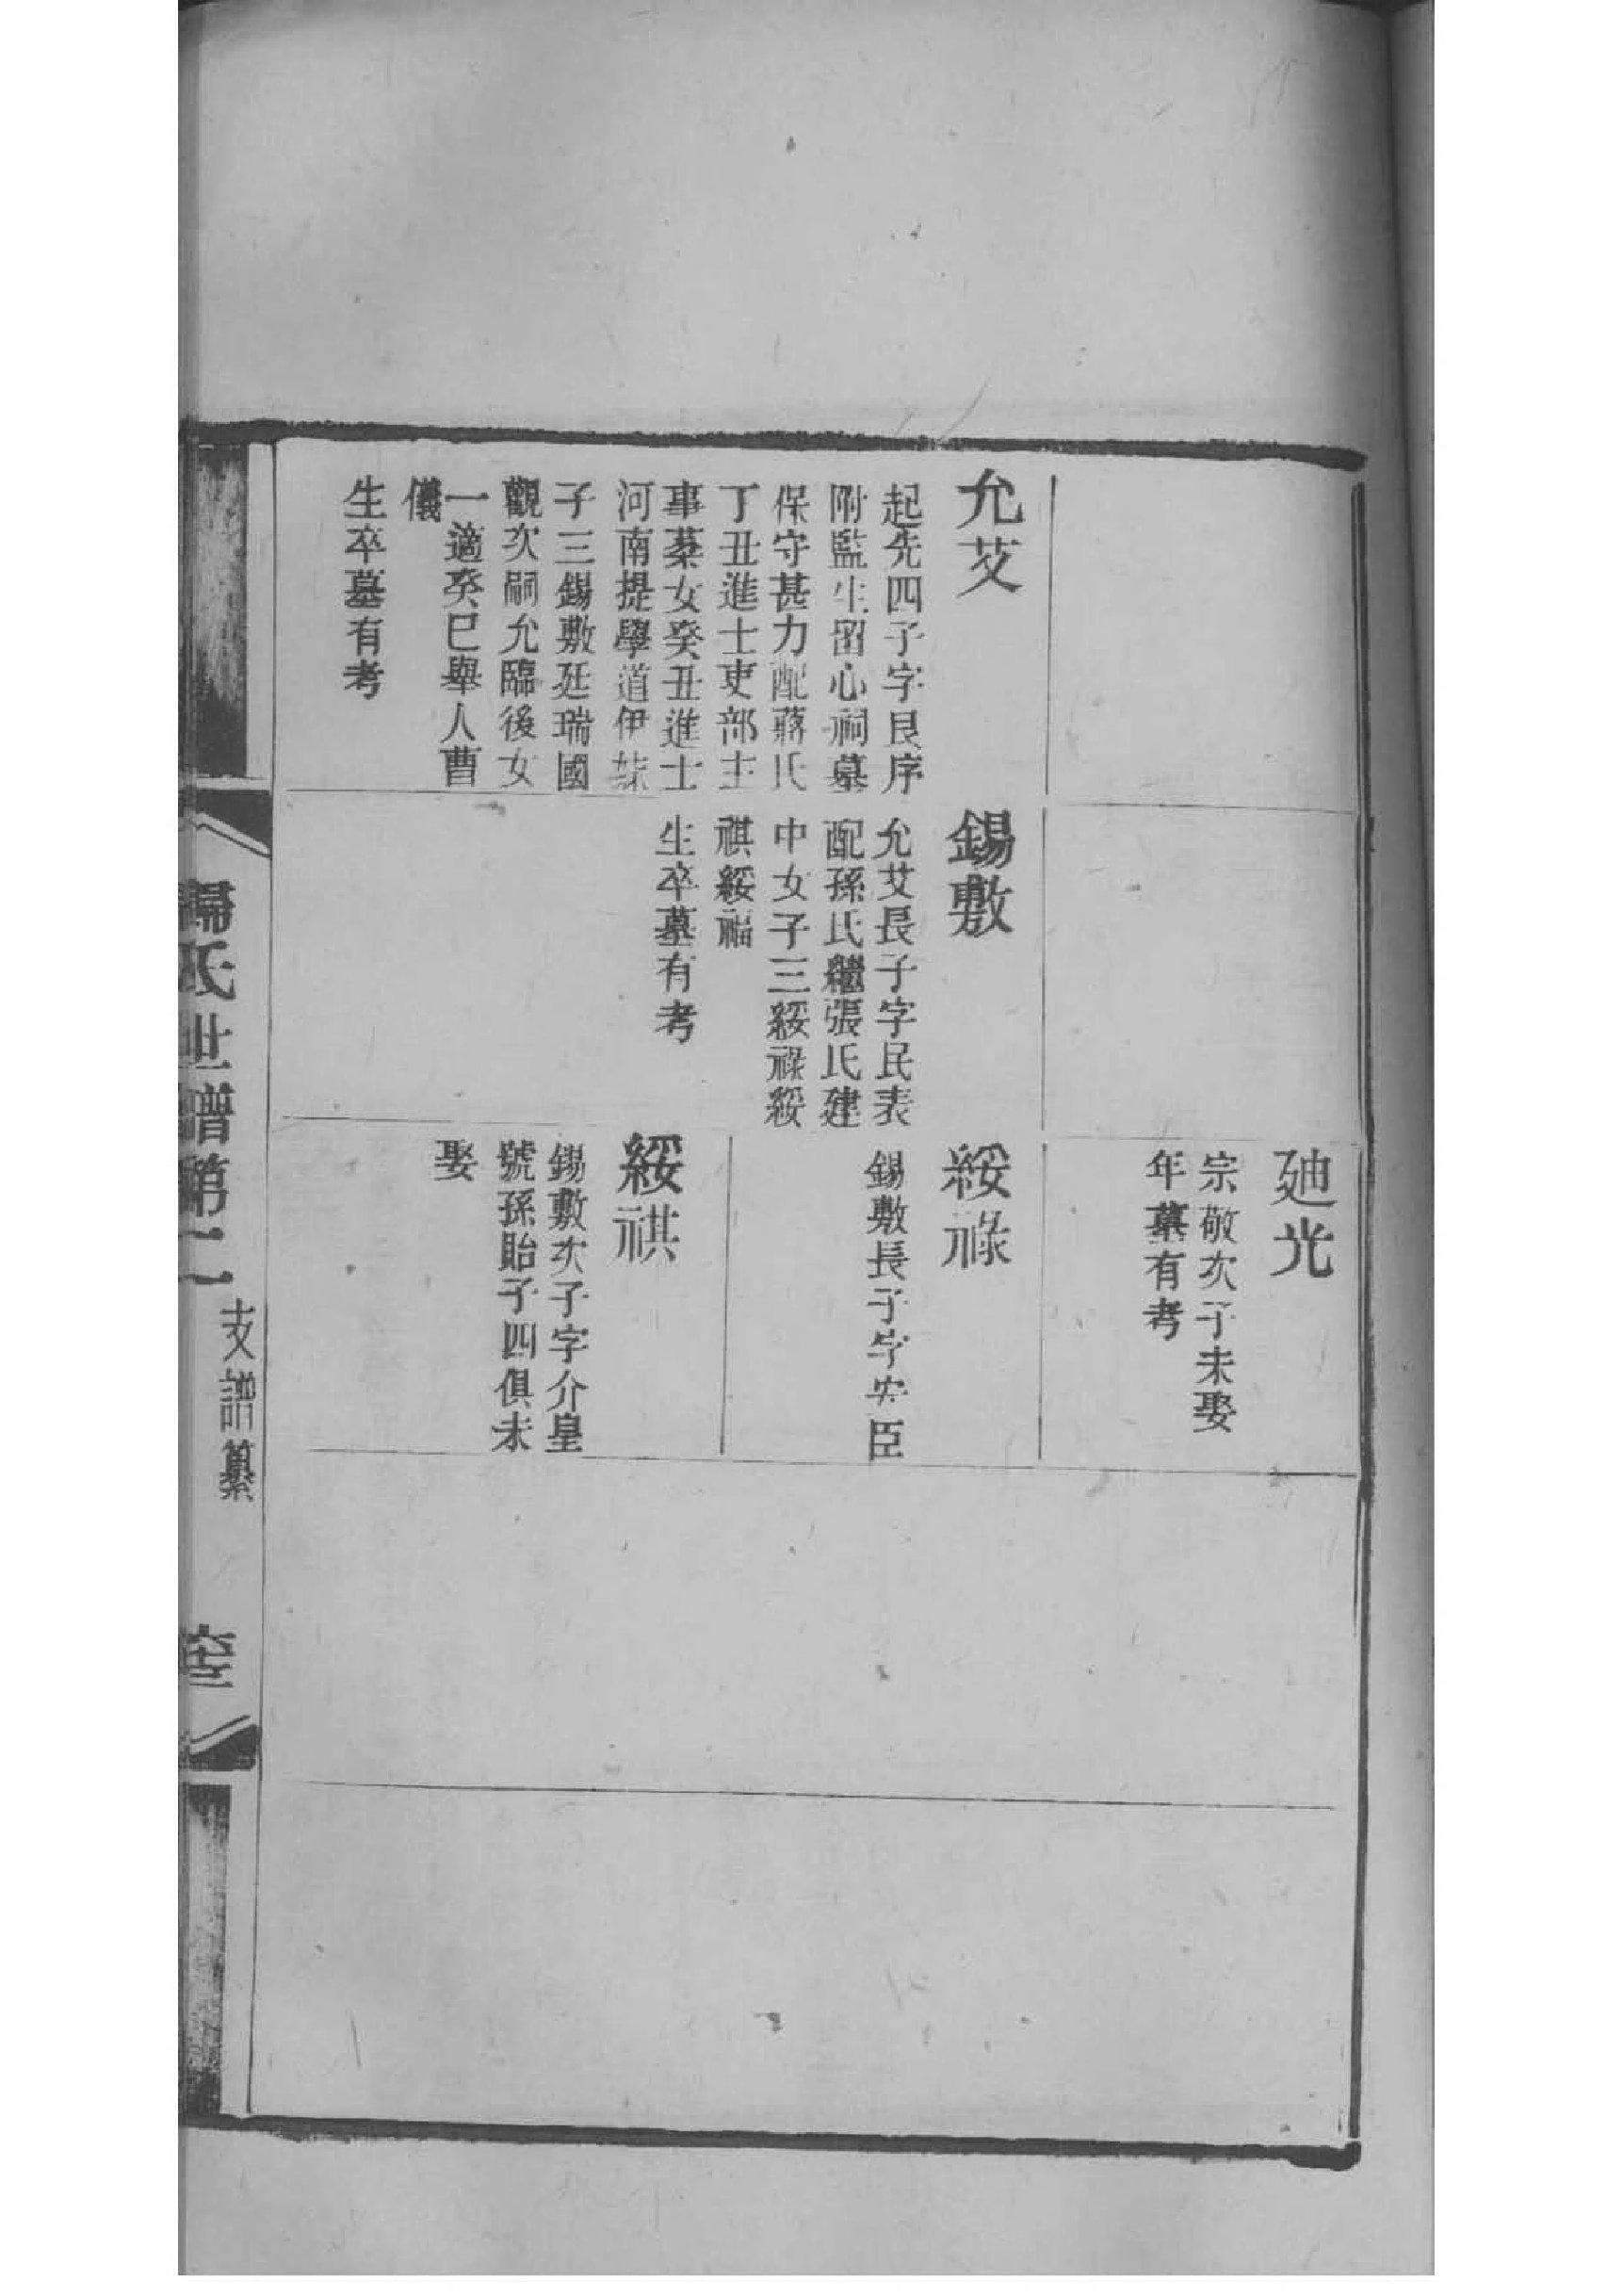 允艾
起先四子字艮序
附監生留心祠墓
保守甚力配蔣氏
丁丑進士吏部主
事棻女癸丑進士
河南提學道伊妹
子三錫敷延瑞國
觀次嗣允臨後女
一適癸巳舉人曹
儀
生卒墓有考
錫敷
允艾長子字民表
配孫氏繼張氏建
中女子三綏祿綏
祺綏福
生卒墓有考
迪光
宗敬次子未娶
年墓有考
綏祿
錫敷長子字安臣
綏祺
錫敷次子字介皇
號孫貽子四俱未
娶
歸氏世譜第二
支譜纂